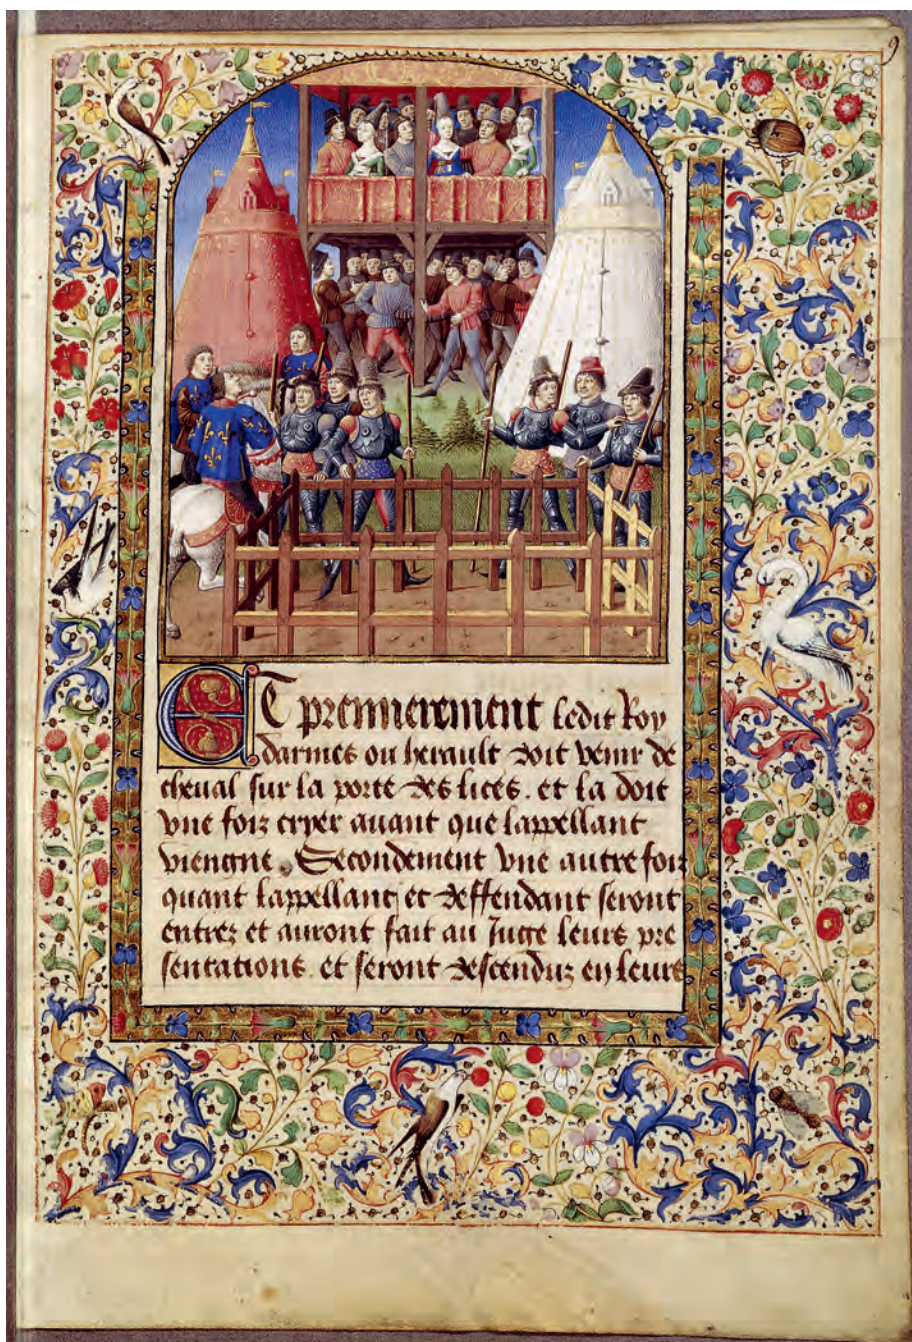 9
ET premierement ledit Roy
darmes ou herault doit venir de
cheual sur la porte des lices. et la doit
vne foiz cryer auant que lappellant
viengne. Secondement vne autre foiz
quant lappellant et deffendant seront
entrez et auront fait au Juge leurs pre
sentations. et seront descenduz en leurs